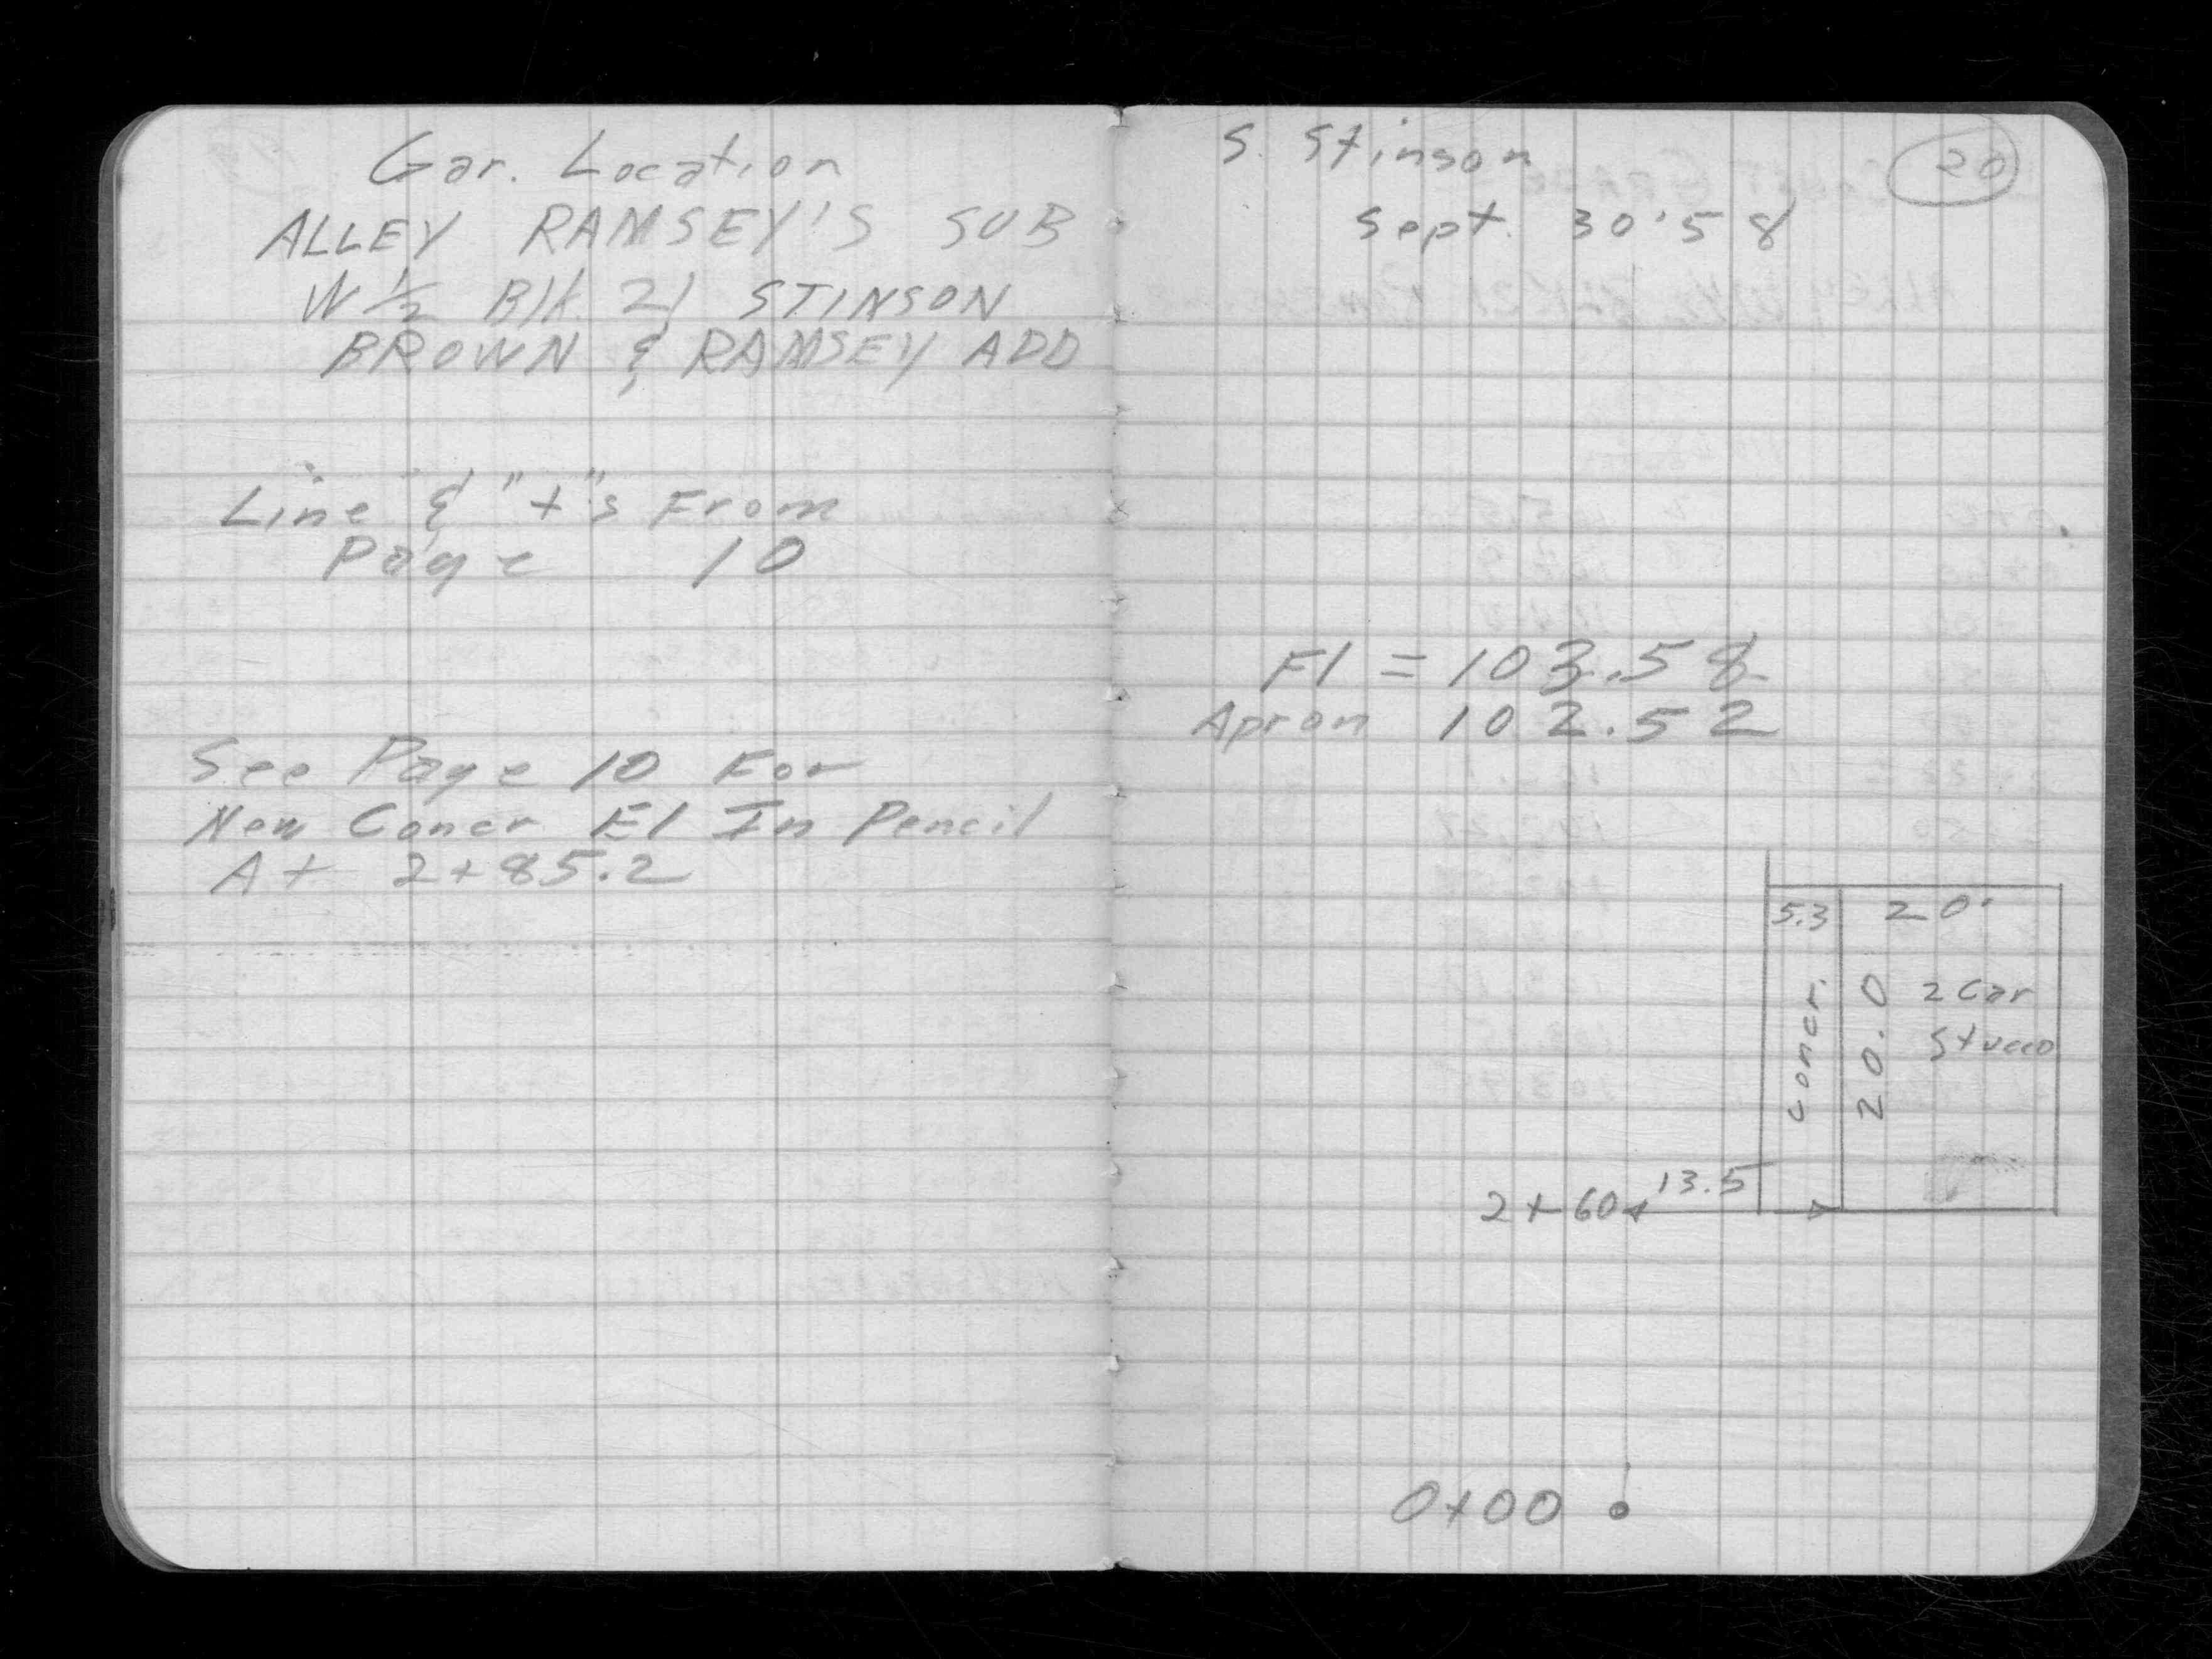 Gar. Location
ALLEY RAMSEY'S SUB
W ½ Blk. 21 STINSON
BROWN & RAMSEY ADD
Line & "+"s From
Page 10
See Page 10 For
New Concr El In Pencil
At 2+85.2
S. Stinson
20
Sept. 30'58
Fl = 103.58
Apron 102.52
5.3 20'
concr. 20.0 2 Car
Stucco
2+60 13.5
0+00